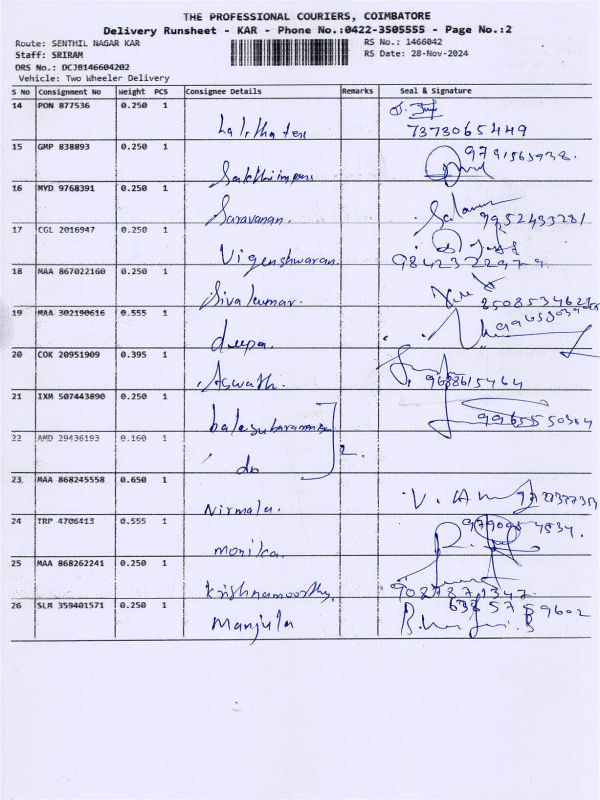 THE PROFESSIONAL COURIERS, COIMBATORE
Delivery Runsheet - KAR - Phone No.:0422-3505555 - Page No.:2
Route: SENTHIL NAGAR KAR RS No.: 1466042
Staff: SRIRAM RS Date: 28-Nov-2024
DRS No.: DCJB146604202
Vehicle: Two Wheeler Delivery
S No Consignment No Weight PCS Consignee Details Remarks Seal & Signature
14 PON 877536 0.250 1
7373065449
15 GMP 838893 0.250 1
16 MYD 9768391 0.250 1
Saravanan. 9952433281
17 CGL 2016947 0.250 1
Vigenshwaran.
18 MAA 867022160 0.250 1
Sivakumar.
19 MAA 302190616 0.555 1
deepa.
20 COK 20951909 0.395 1
Aswath. 9688615464
21 IXM 507443890 0.250 1
9965550304
22 AMD 29436193 0.160 1
do 2.
23 MAA 868245558 0.650 1
Nirmala.
24 TRP 4706413 0.555 1
monika.
25 MAA 868262241 0.250 1
Krishnamoorthy.
26 SLM 359401571 0.250 1
Manjula